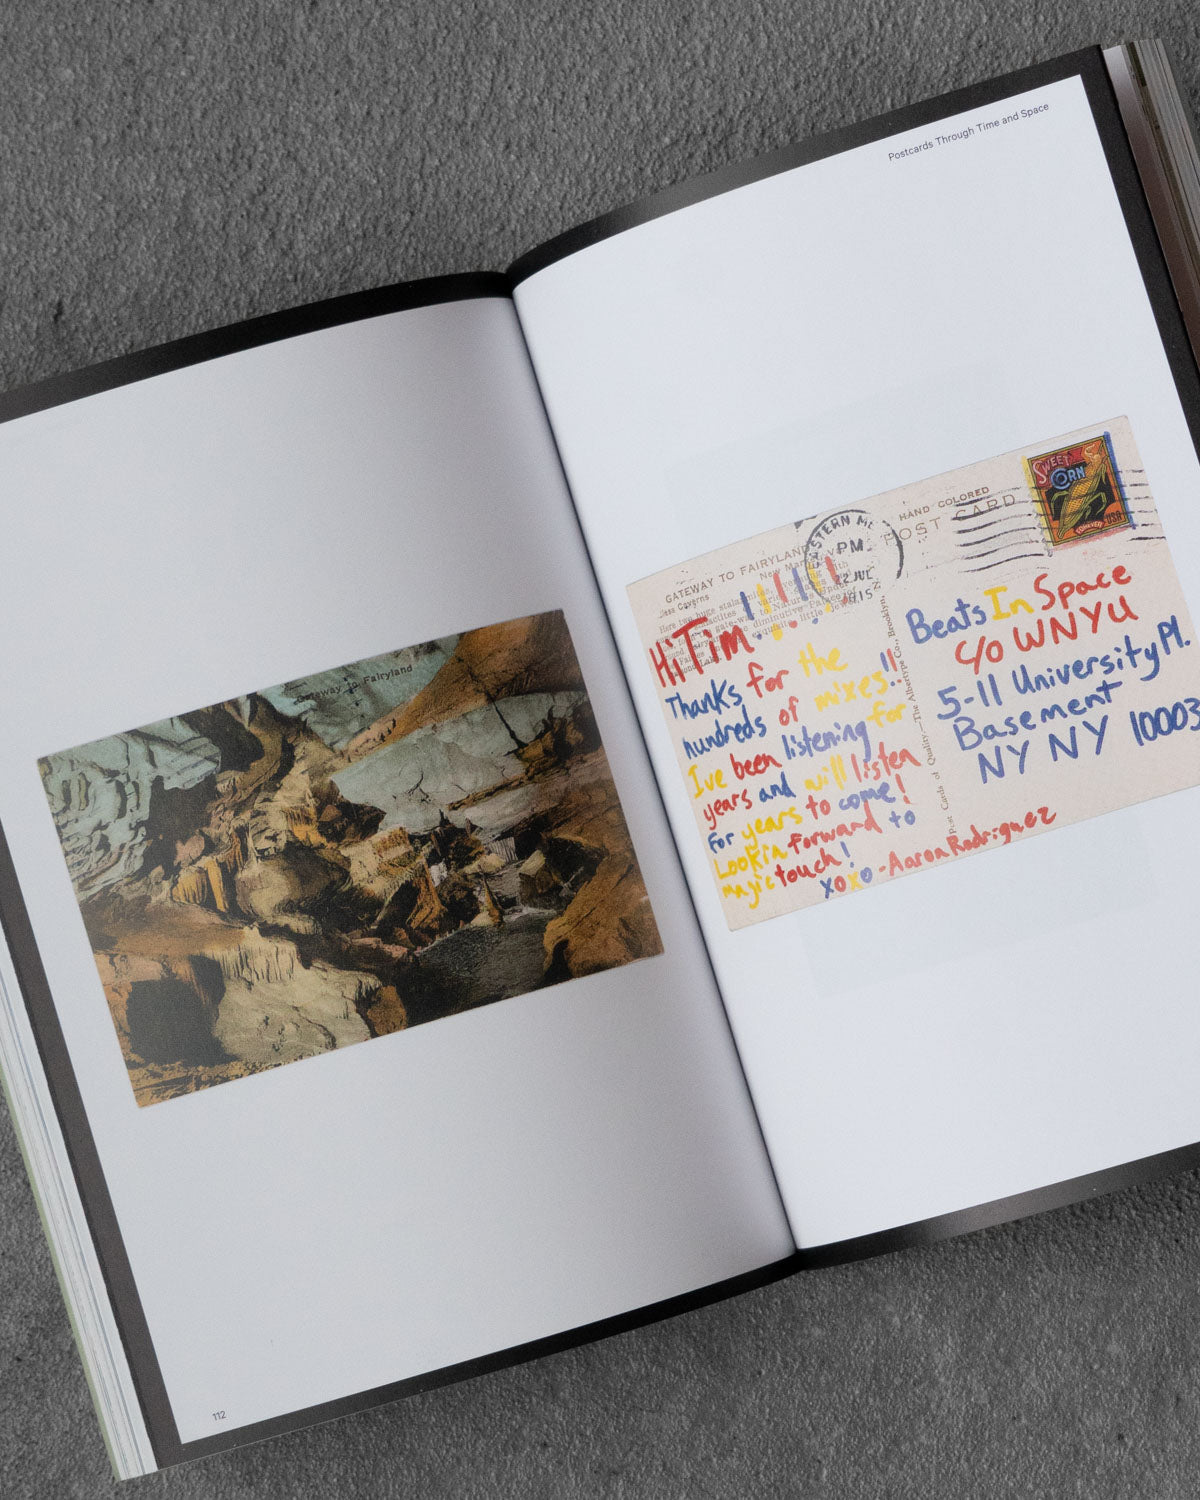 Postcards Through Time and Space
Gateway to Fairyland
112
HAND COLORED
POST CARD
GATEWAY TO FAIRYLAND
New Mar
less Caverns
Here two huge stala
STERN M
PM
22 JUL
SWEET
CORN
FOREVER
USA
Post Cards of Quality.—The Albertype Co., Brooklyn, N.
Hi Tim!!!!!!
Thanks for the
hundreds of mixes!!
Ive been listening for
years and will listen
for years to come!
Lookin forward to
magic touch!
xoxo -Aaron Rodriguez
Beats In Space
c/o WNYU
5-11 University Pl.
Basement
NY NY 10003